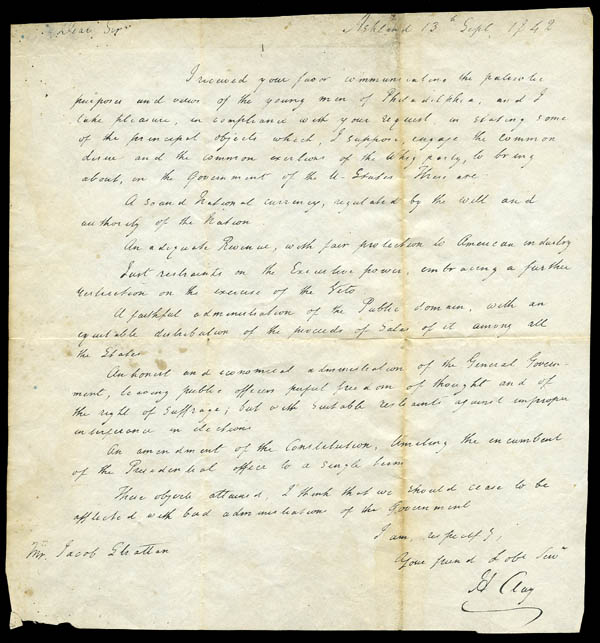 Dear Sir Ashland 13th Sept. 1842
I received your favor communicating the patriotic
purposes and views of the young men of Philadelphia, and I
take pleasure, in compliance with your request, in stating some
of the principal objects which, I suppose, engage the common
desire and the common exertions of the Whig party, to bring
about, in the Government of the U. States. These are
A sound National currency, regulated by the will and
authority of the Nation
An adequate Revenue, with fair protection to American industry
Just restraints on the Executive power, embracing a further
restriction on the exercise of the Veto
A faithful administration of the Public domain, with an
equitable distribution of the proceeds of sales of it among all
the States
An honest and economical administration of the General Govern-
ment, leaving public officers perfect freedom of thought and of
the right of suffrage; but with suitable restraints against improper
interference in elections
An amendment of the Constitution, limiting the incumbent
of the Presidential office to a single term
These objects attained, I think that we should cease to be
afflicted with bad administration of the Government
I am, respectfy,
Your friend & obt Servt
Mr. Jacob Strattan
H Clay